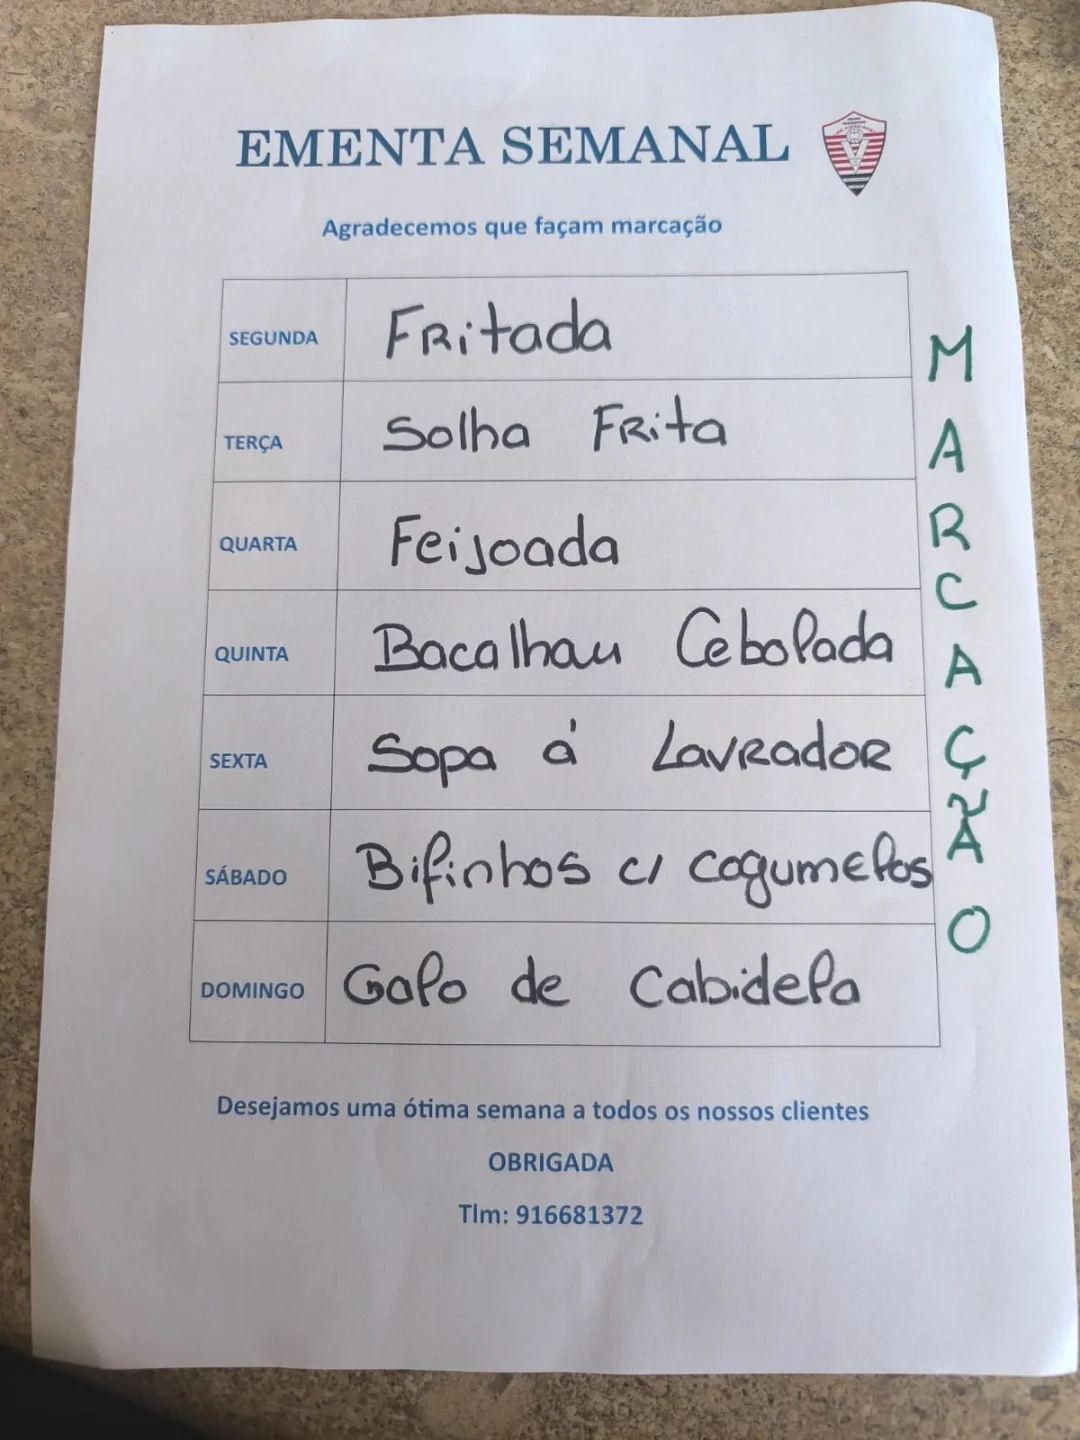 EMENTA SEMANAL
Agradecemos que façam marcação
SEGUNDA Fritada
TERÇA Solha Frita
QUARTA Feijoada
QUINTA Bacalhau Cebolada
SEXTA Sopa á Lavrador
SÁBADO Bifinhos c/ cogumelos
DOMINGO Galo de Cabidela
MARCAÇÃO
Desejamos uma ótima semana a todos os nossos clientes
OBRIGADA
Tlm: 916681372